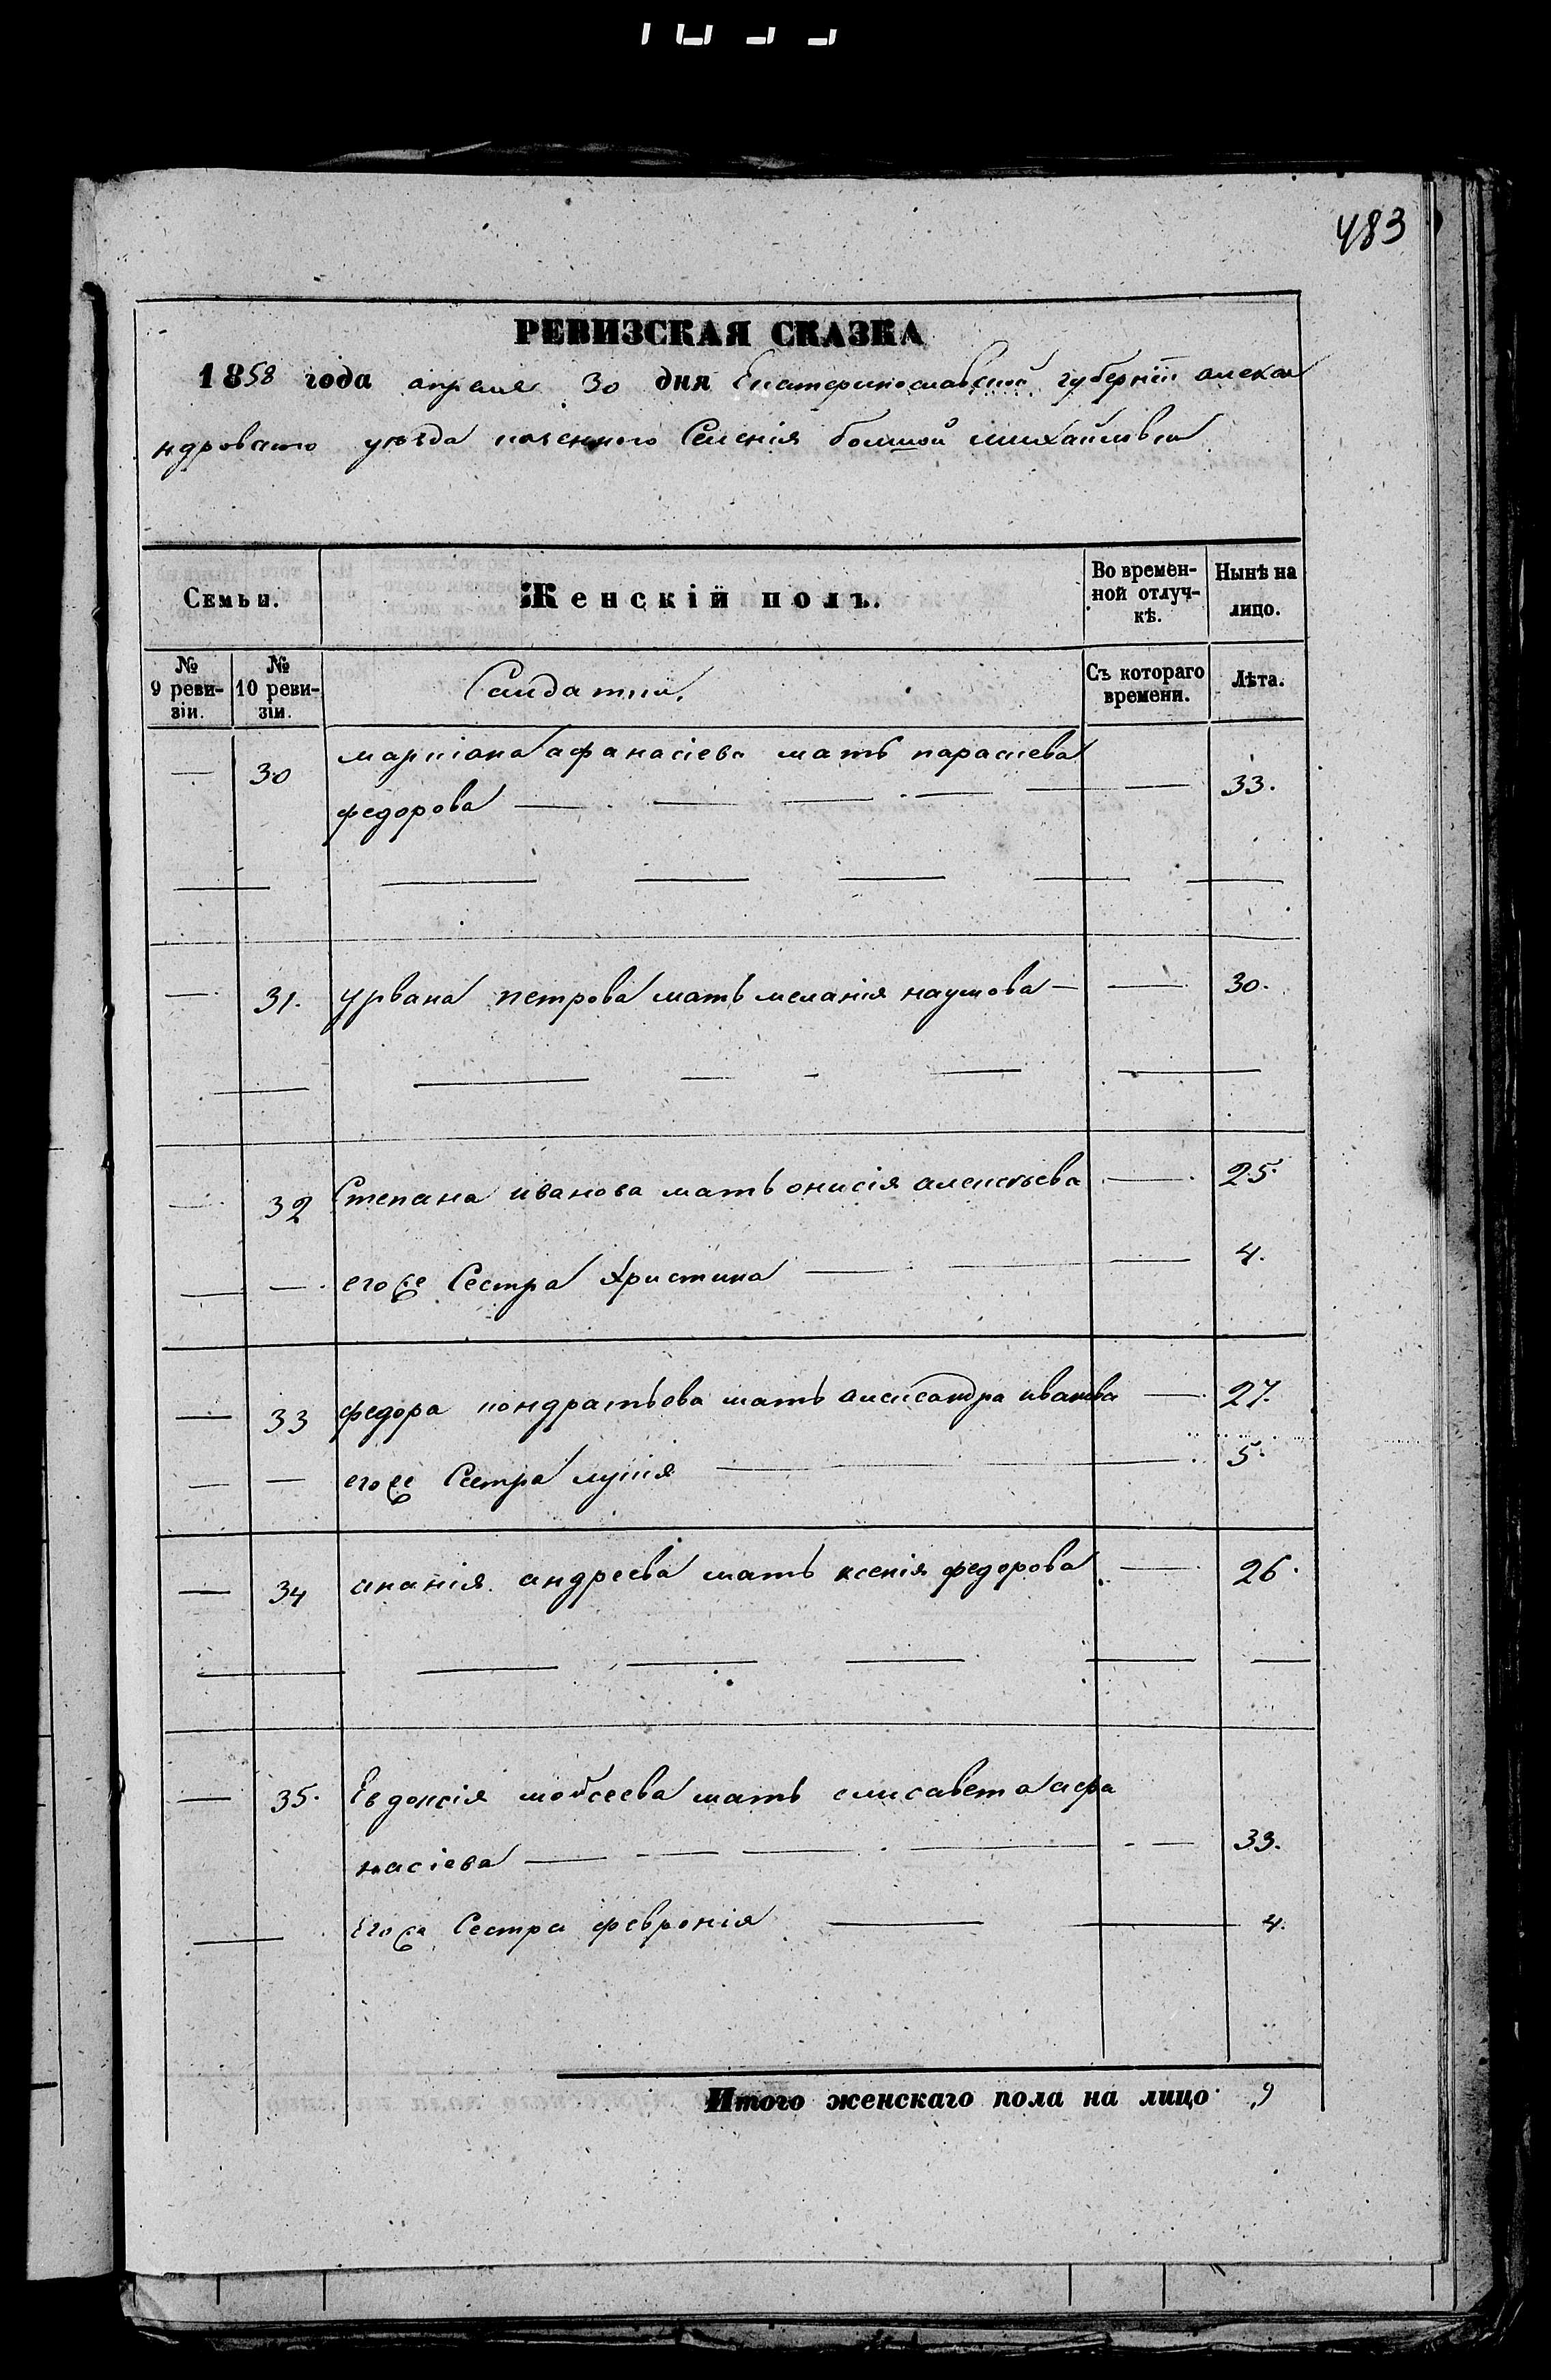 483
РЕВИЗСКАЯ СКАЗКА
1858 года апреля 30 дня Екатеринославской губернiи алекса
ндроваго уюзда казенного Селенiя большой михайловки
Семьи.
Женскiй полъ.
Во времен-
ной отлуч-
кѣ.
Нынѣ на
лицо.
№
9 реви-
зiи.
№
10 реви-
зiи.
Салдатки.
Съ котораго
времени.
Лѣта.
— 30 маркiана афанасiева мать параскева
федорова — 33.
— 31. урвана петрова мать меланiя наумова — 30.
— 32 Степана иванова мать онисiя алексѣева — 25
— его же Сестра Христина — 4.
— 33 федора кондратьева мать александра иванова — 27.
— — его же Сестра лукiя — 5.
— 34 ананiя андреева мать ксенiя федорова — 26.
— 35. Евдокiя мойсеева мать елисавета афа
насiева — 33.
Его же Сестра февронiя — 4.
Итого женскаго пола на лицо 9